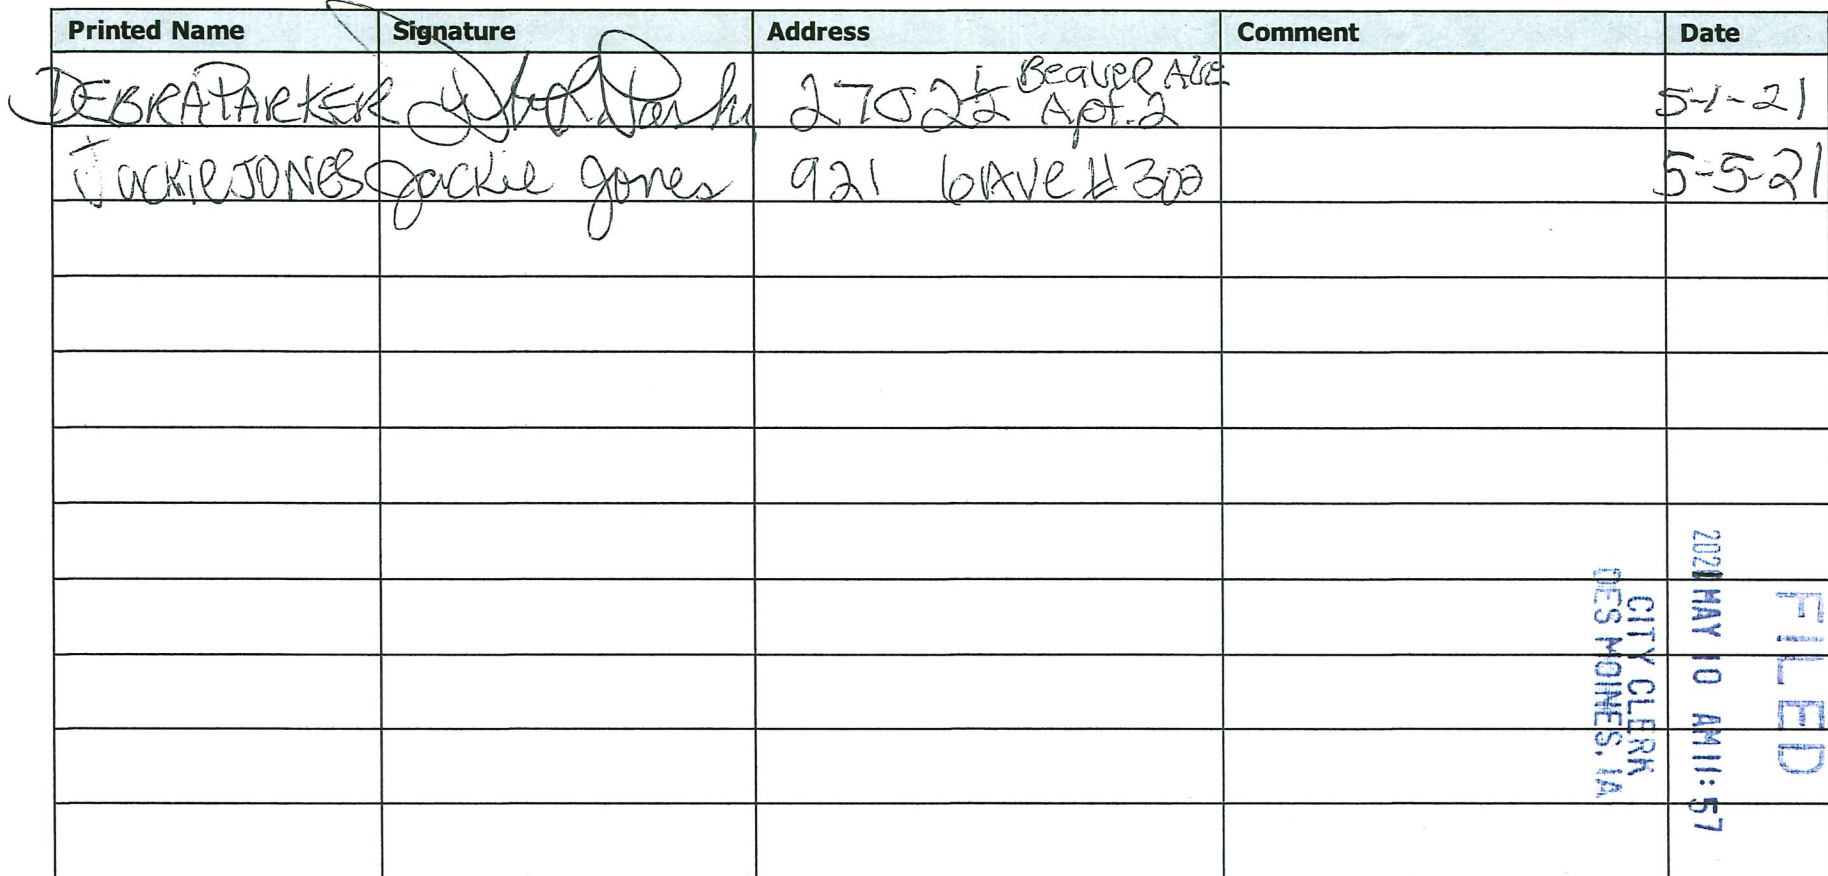 Printed Name Signature Address Comment Date
DEBRA PARKER Debra Parker 2702 1/2 Beaver Ave 5-1-21
Apt. 2
Jackie JONES Jackie Jones 921 6 AVE #300 5-5-21
FILED
2021 MAY 10 AM 11:57
CITY CLERK
DES MOINES, IA